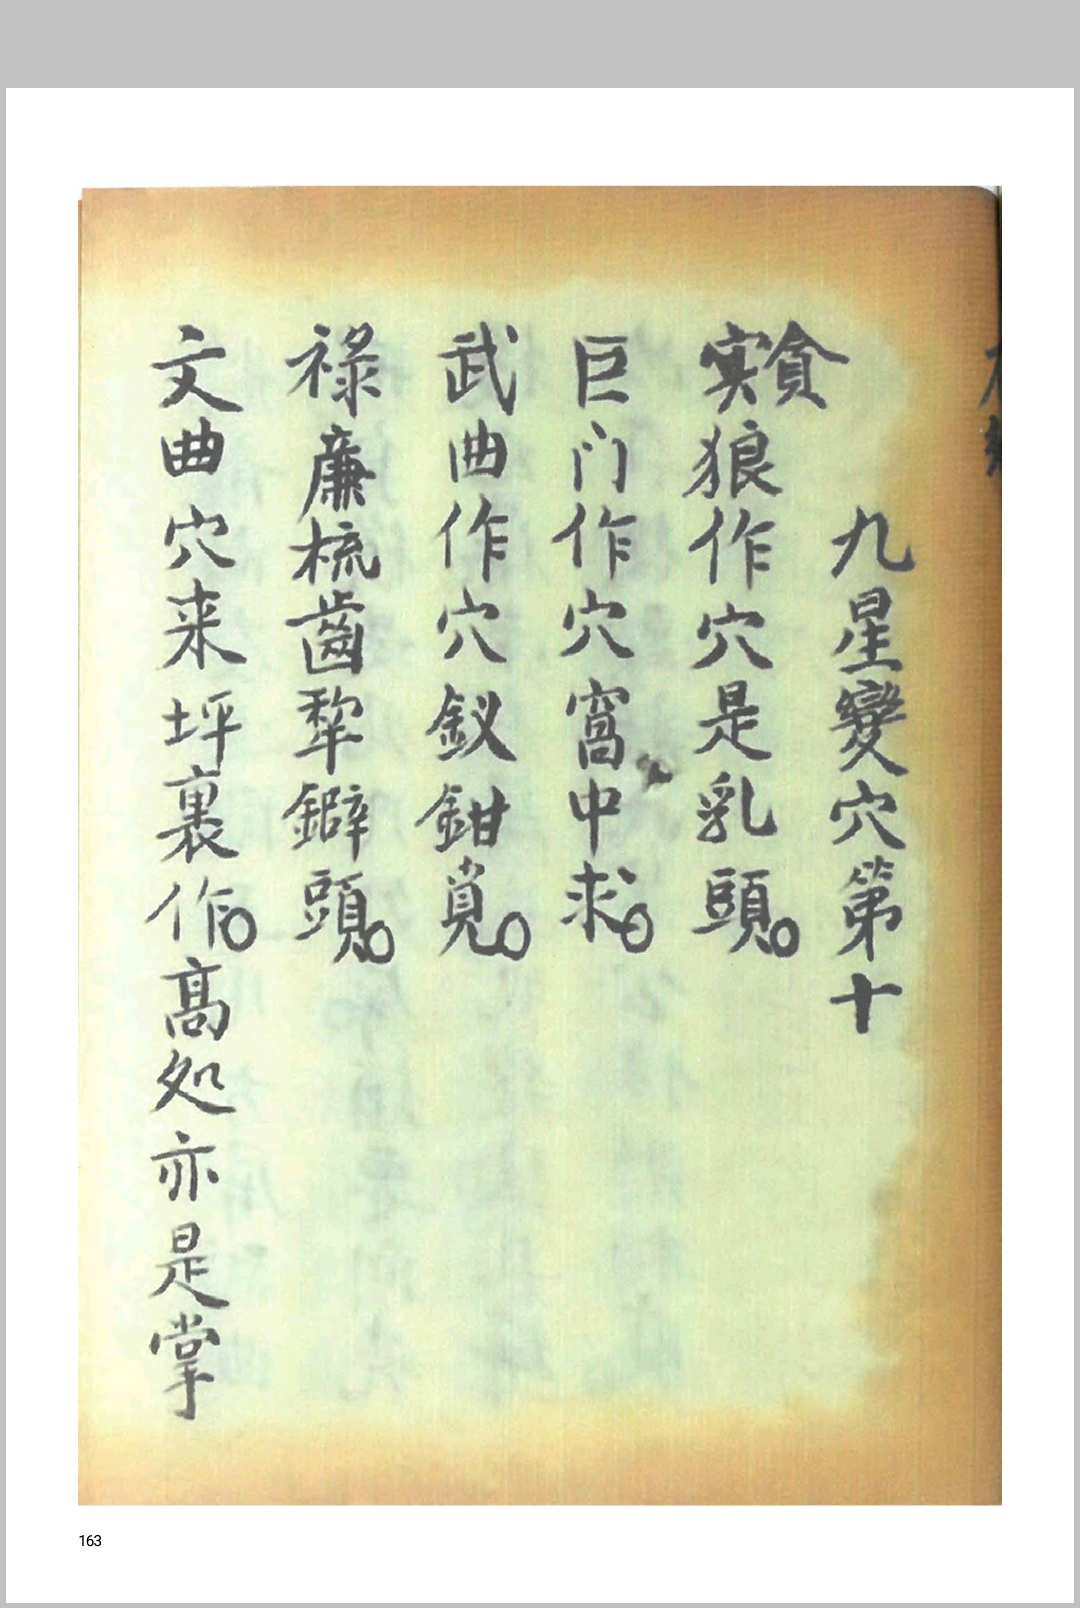 九星變穴第十
實貪狼作穴是乳頭。
巨门作穴窩中求。
武曲作穴釵鉗覓。
祿廉梳齒犂鐴頭。
文曲穴来坪裏作。高処亦是掌
163